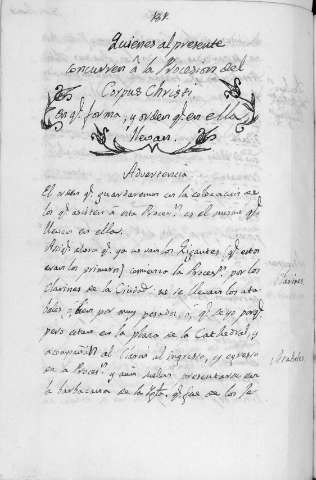 181.
Quienes al presente
concurren â la Procesion del
Corpus Christi
en q.e forma, y orden q.e en ella
llevan.
Advertencia
El orden q.e guardaremos en la colocacion de
los q.e asisten â esta Proces.n es el mismo q.e
llevan en ella.
Assi q.e ahora q.e ya no van los Gigantes (q.e estos
eran los primeros) comienza la Proces.n por los
Clarines de la Ciudad: no se llevan los ata-
bales, o bien por muy pesados, o q.e se yo porq.e
pero estan en la plaza de la Cathedral, y
acompañan al Clarin al ingresso, y egresso
en la Proces.n y aun suelen presentarse en
la barbacana de la q.e fue de los Je-
Clarines
Atabales